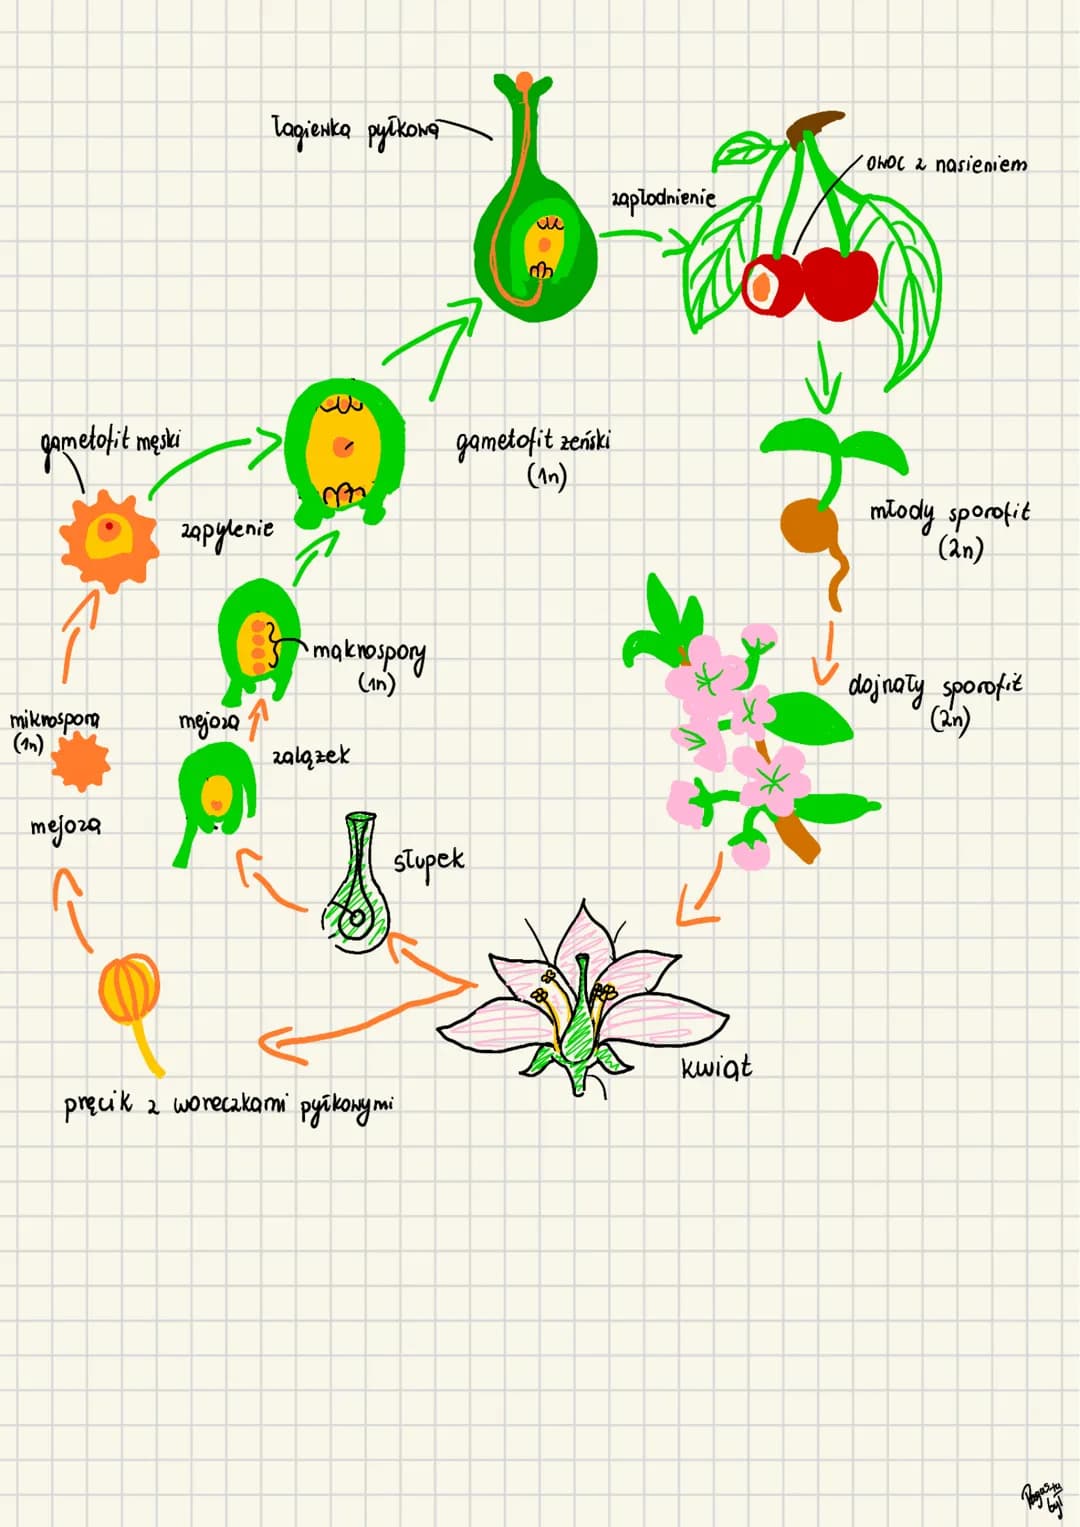 łagiewka pyłkowa
owoc z nasieniem
zapłodnienie
gametofit męski
gametofit żeński
(1n)
zapylenie
młody sporofit
(2n)
makrospory
(1n)
dojrzały sporofit
(2n)
mikrospora
(1n)
mejoza
zalążek
mejoza
słupek
kwiat
pręcik z woreczkami pyłkowymi
tu
był